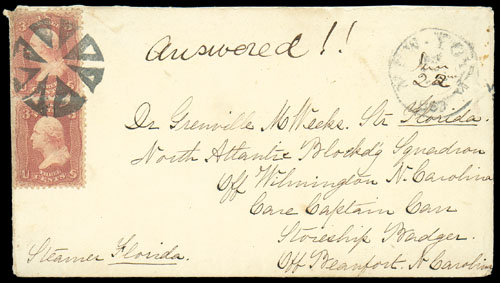 Answered!!
NEW-YORK
22
Dr Grenville M Weeks. Str Florida.
North Atlantic Blockd'g Squadron
Off Wilmington N. Carolina
Care Captain Carr
Storeship Badger.
Off Beaufort. N Carolina
Steamer Florida.
3 3
U CENTS S